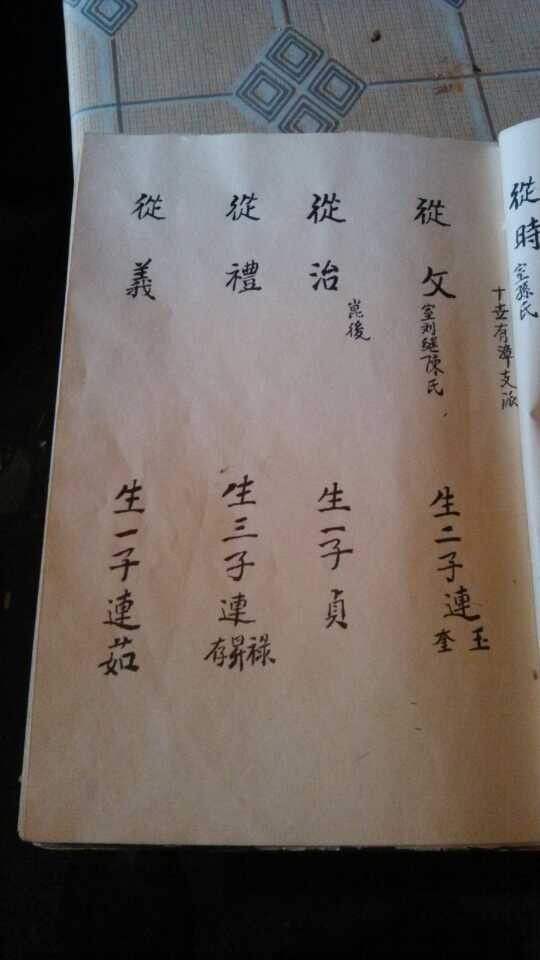 從時
室孫氏
十世有漳支派
從文
室刘継陳氏
生二子連玉
奎
從治
崑後
生一子貞
從禮
生三子連祿
昇
存
從義
生一子連茹